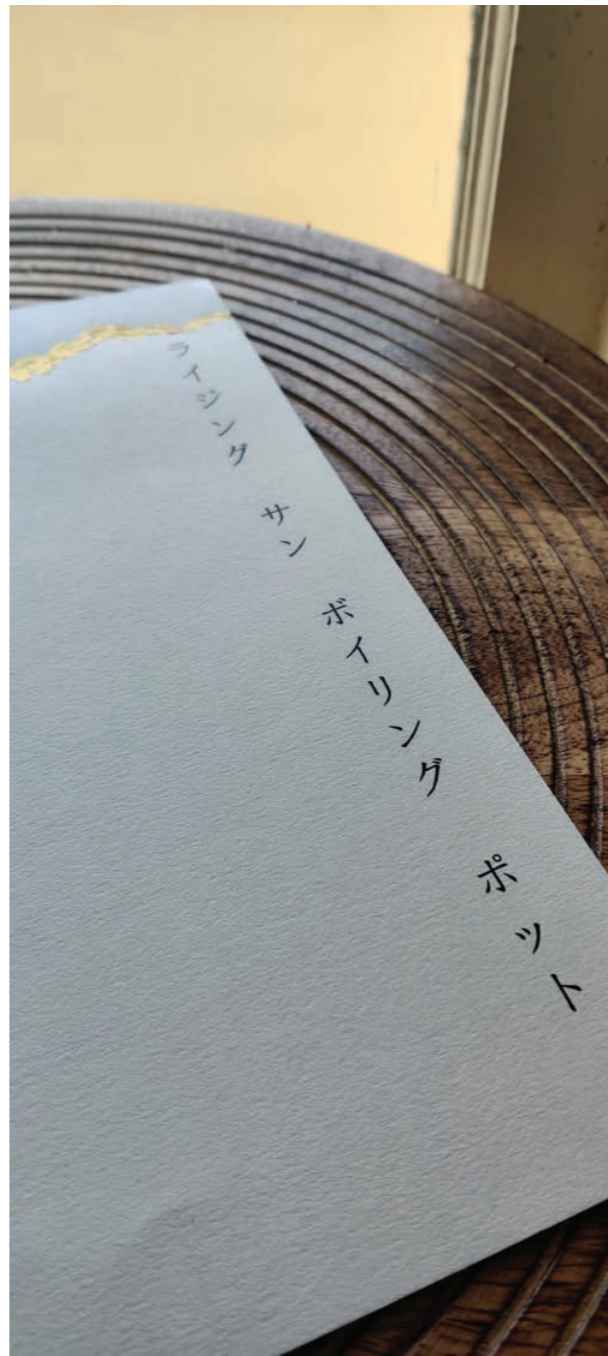 ライジング サン ボイリング ポット